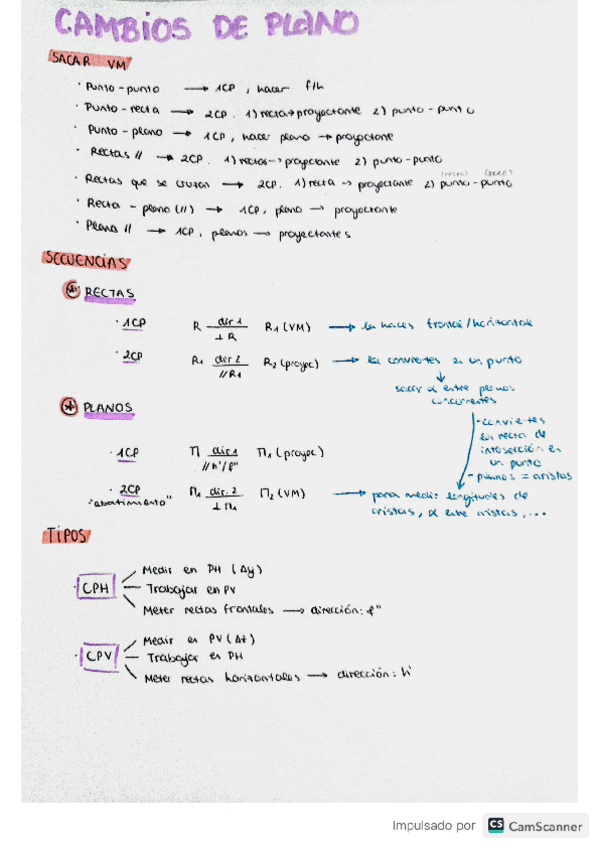 CAMBIOS DE PLANO
SACAR VM
· Punto-punto → 1CP, hacer f/h
· Punto-recta → 2CP. 1) recta → proyectante 2) punto-punto
· Punto-plano → 1CP, hacer plano → proyectante
· Rectas // → 2CP. 1) rectas → proyectante 2) punto-punto
· Rectas que se cruzan → 2CP. 1) recta → proyectante 2) punto-punto
· Recta-plano (//) → 1CP, plano → proyectante
· Plano // → 1CP, planos → proyectantes
SECUENCIAS
RECTAS
· 1CP R dir 1 ⊥ R R₁ (VM) → la haces frontal/horizontal
· 2CP R₁ dir 2 // R₁ R₂ (proyec) → la conviertes en un punto
sacar α entre planos
concurrentes
- conviertes
la recta de
intersección en
un punto
- planos = aristas
PLANOS
· 1CP Π dir 1 // h'/f'' Π₁ (proyec)
· 2CP Π₁ dir. 2 ⊥ Π₁ Π₂ (VM) → para medir longitudes de
"abatimiento" aristas, α entre aristas, ...
TIPOS
· CPH
Medir en PH (Δy)
Trabajar en PV
Meter rectas frontales → dirección: f''
· CPV
Medir en PV (Δz)
Trabajar en PH
Meter rectas horizontales → dirección: h'
Impulsado por CS CamScanner